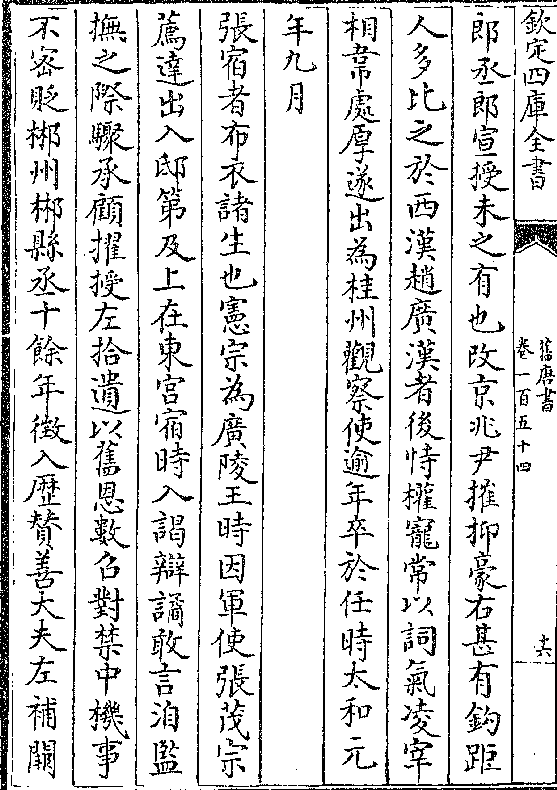 欽定四庫全書
舊唐書
卷一百五十四
十六
郎丞郎宣授未之有也改京兆尹摧抑豪右甚有鈎距
人多比之於西漢趙廣漢者後恃權寵常以詞氣凌宰
相韋處厚遂出為桂州觀察使逾年卒於任時太和元
年九月
張宿者布衣諸生也憲宗為廣陵王時因軍使張茂宗
薦達出入邸第及上在東宮宿時入謁辯譎敢言洎監
撫之際驟承顧擢授左拾遺以舊恩數召對禁中機事
不密貶郴州郴縣丞十餘年徵入歴贊善大夫左補闕